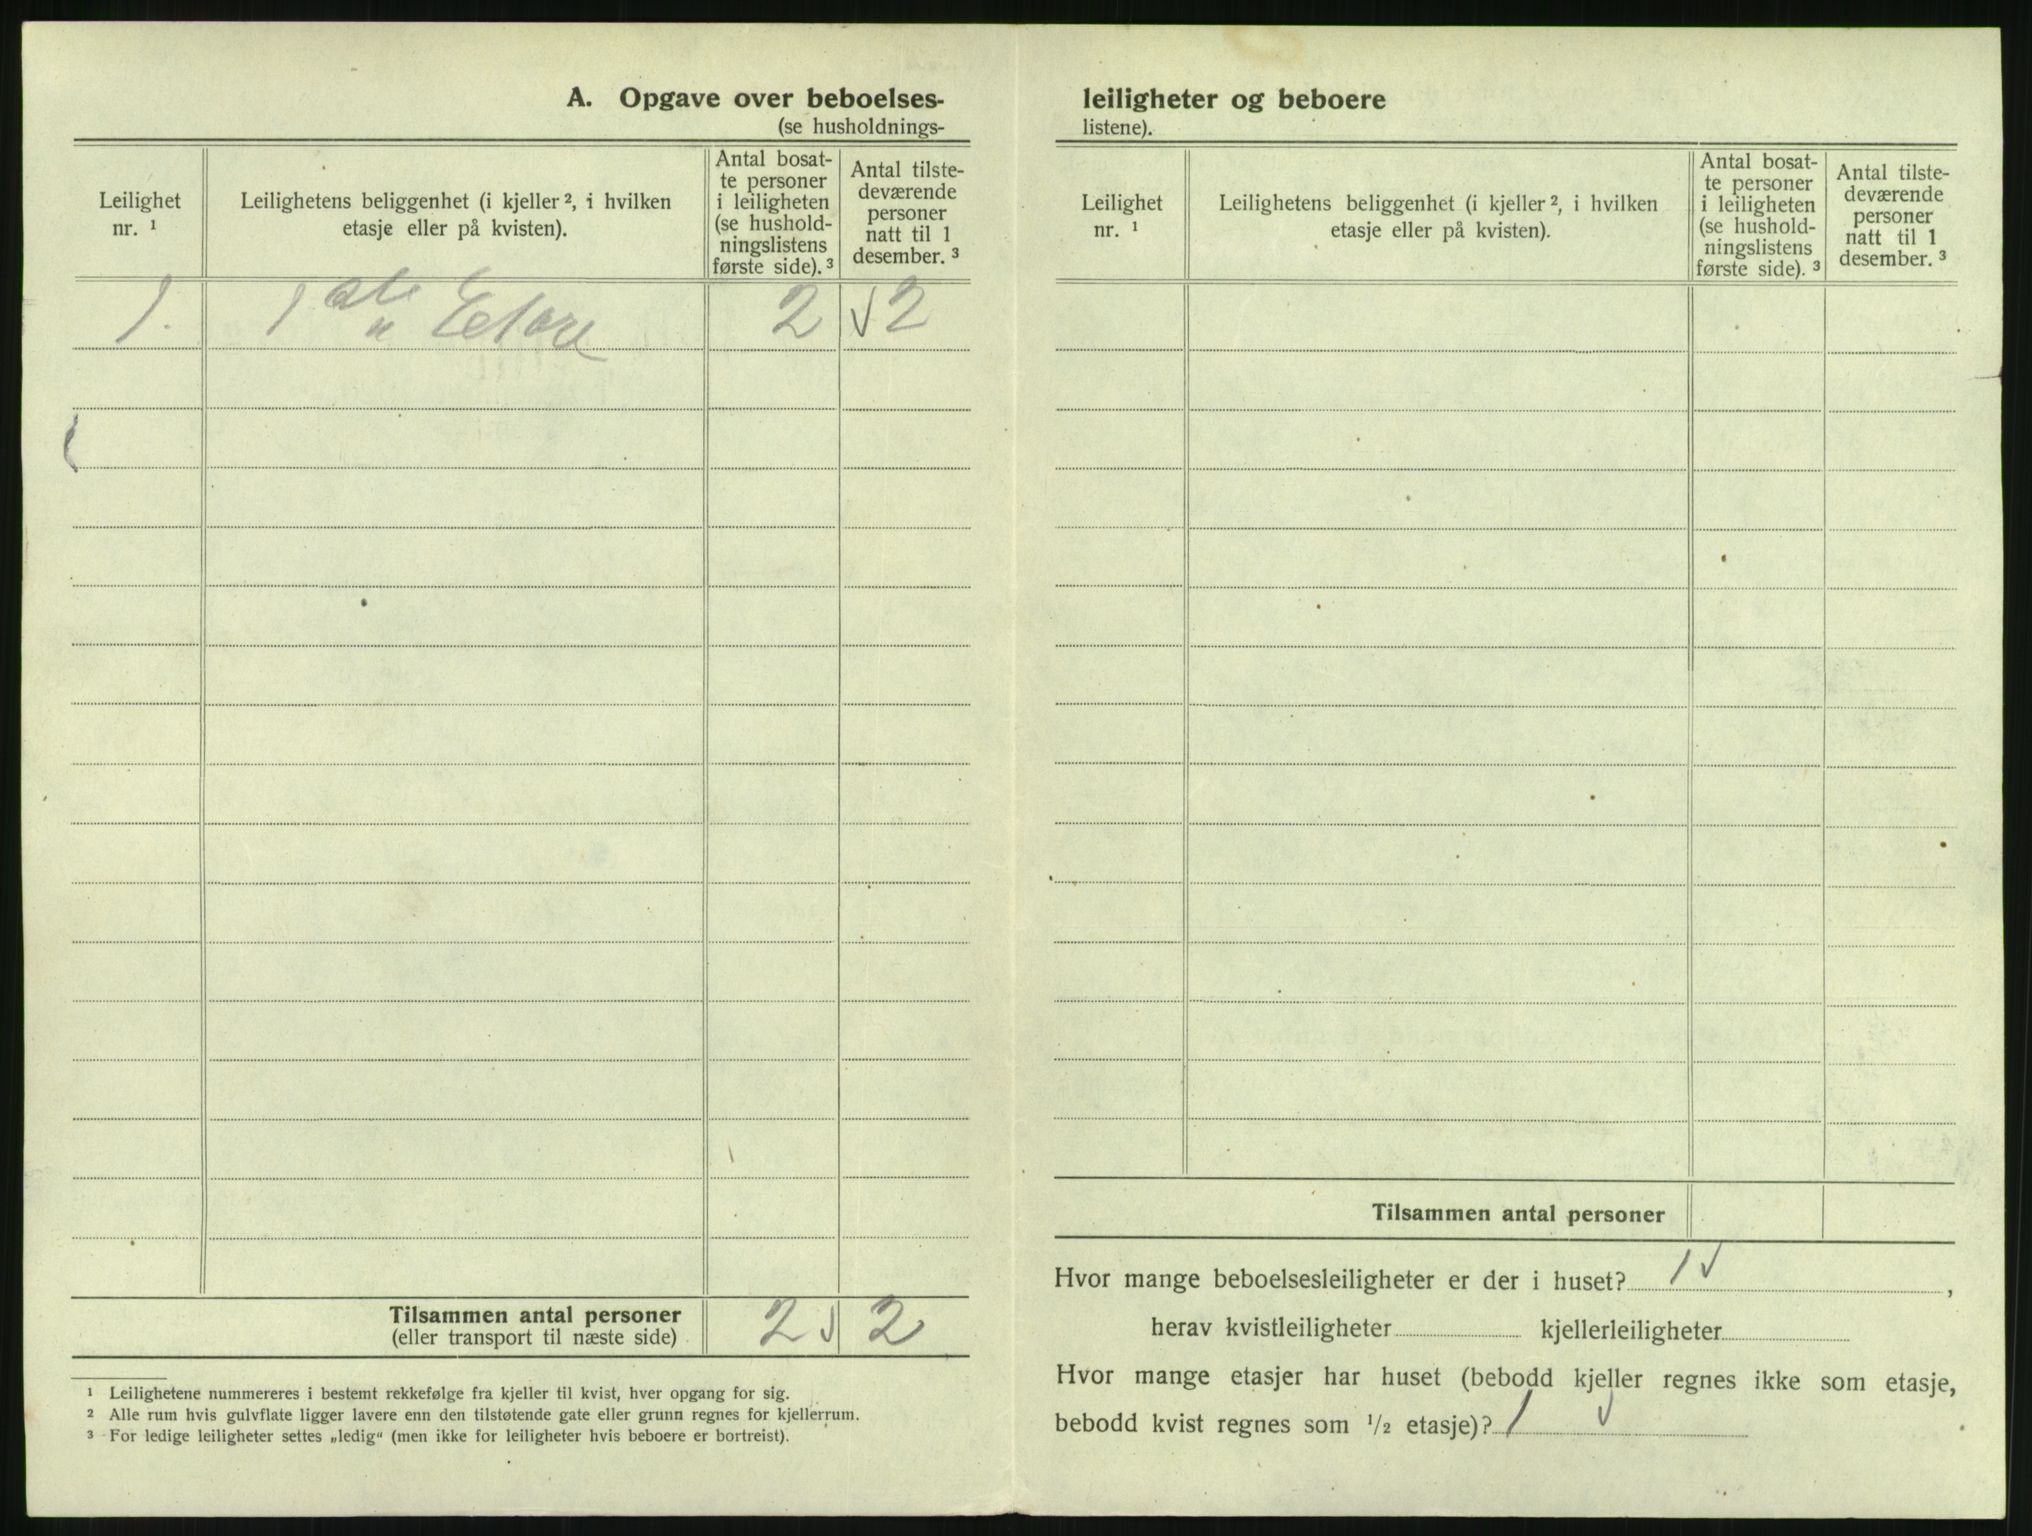 A. Opgave over beboelses-
(se husholdnings-
Leilighet
nr. ¹
Leilighetens beliggenhet (i kjeller ², i hvilken
etasje eller på kvisten).
Antal bosat-
te personer
i leiligheten
(se hushold-
ningslistens
første side). ³
Antal tilste-
deværende
personer
natt til 1
desember. ³
1. 1ste 2 √ 2
Tilsammen antal personer 2 √ 2
(eller transport til næste side)
¹ Leilighetene nummereres i bestemt rekkefølge fra kjeller til kvist, hver opgang for sig.
² Alle rum hvis gulvflate ligger lavere enn den tilstøtende gate eller grunn regnes for kjellerrum.
³ For ledige leiligheter settes „ledig“ (men ikke for leiligheter hvis beboere er bortreist).
leiligheter og beboere
listene).
Leilighet
nr. ¹
Leilighetens beliggenhet (i kjeller ², i hvilken
etasje eller på kvisten).
Antal bosat-
te personer
i leiligheten
(se hushold-
ningslistens
første side). ³
Antal tilste-
deværende
personer
natt til 1
desember. ³
Tilsammen antal personer
Hvor mange beboelsesleiligheter er der i huset? 1 √ ,
herav kvistleiligheter kjellerleiligheter
Hvor mange etasjer har huset (bebodd kjeller regnes ikke som etasje,
bebodd kvist regnes som ¹/₂ etasje)? 1 √